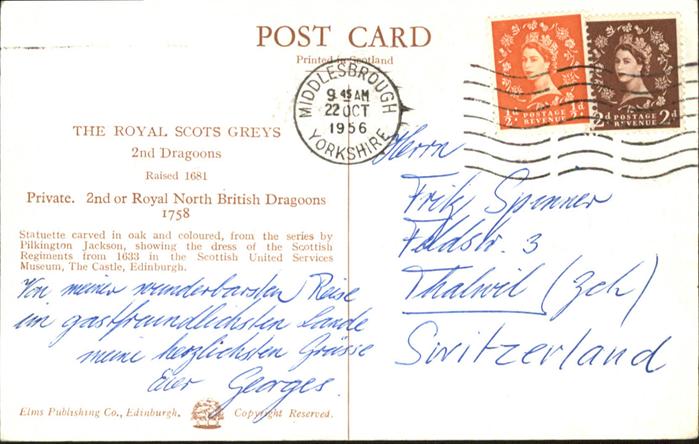 POST CARD
Printed in Scotland
MIDDLESBROUGH
9.45 AM
22 OCT
1956
YORKSHIRE
½d POSTAGE REVENUE ½d
2d POSTAGE REVENUE 2d
THE ROYAL SCOTS GREYS
2nd Dragoons
Raised 1681
Private. 2nd or Royal North British Dragoons
1758
Statuette carved in oak and coloured, from the series by
Pilkington Jackson, showing the dress of the Scottish
Regiments from 1633 in the Scottish United Services
Museum, The Castle, Edinburgh.
Von meiner wunderbarsten Reise
im gastfreundlichsten Lande
meine herzlichsten Grüsse
Euer Georges.
Elms Publishing Co., Edinburgh. Copyright Reserved.
Herrn
Fritz Spinner
Feldstr. 3
Thalwil (Zch)
Switzerland